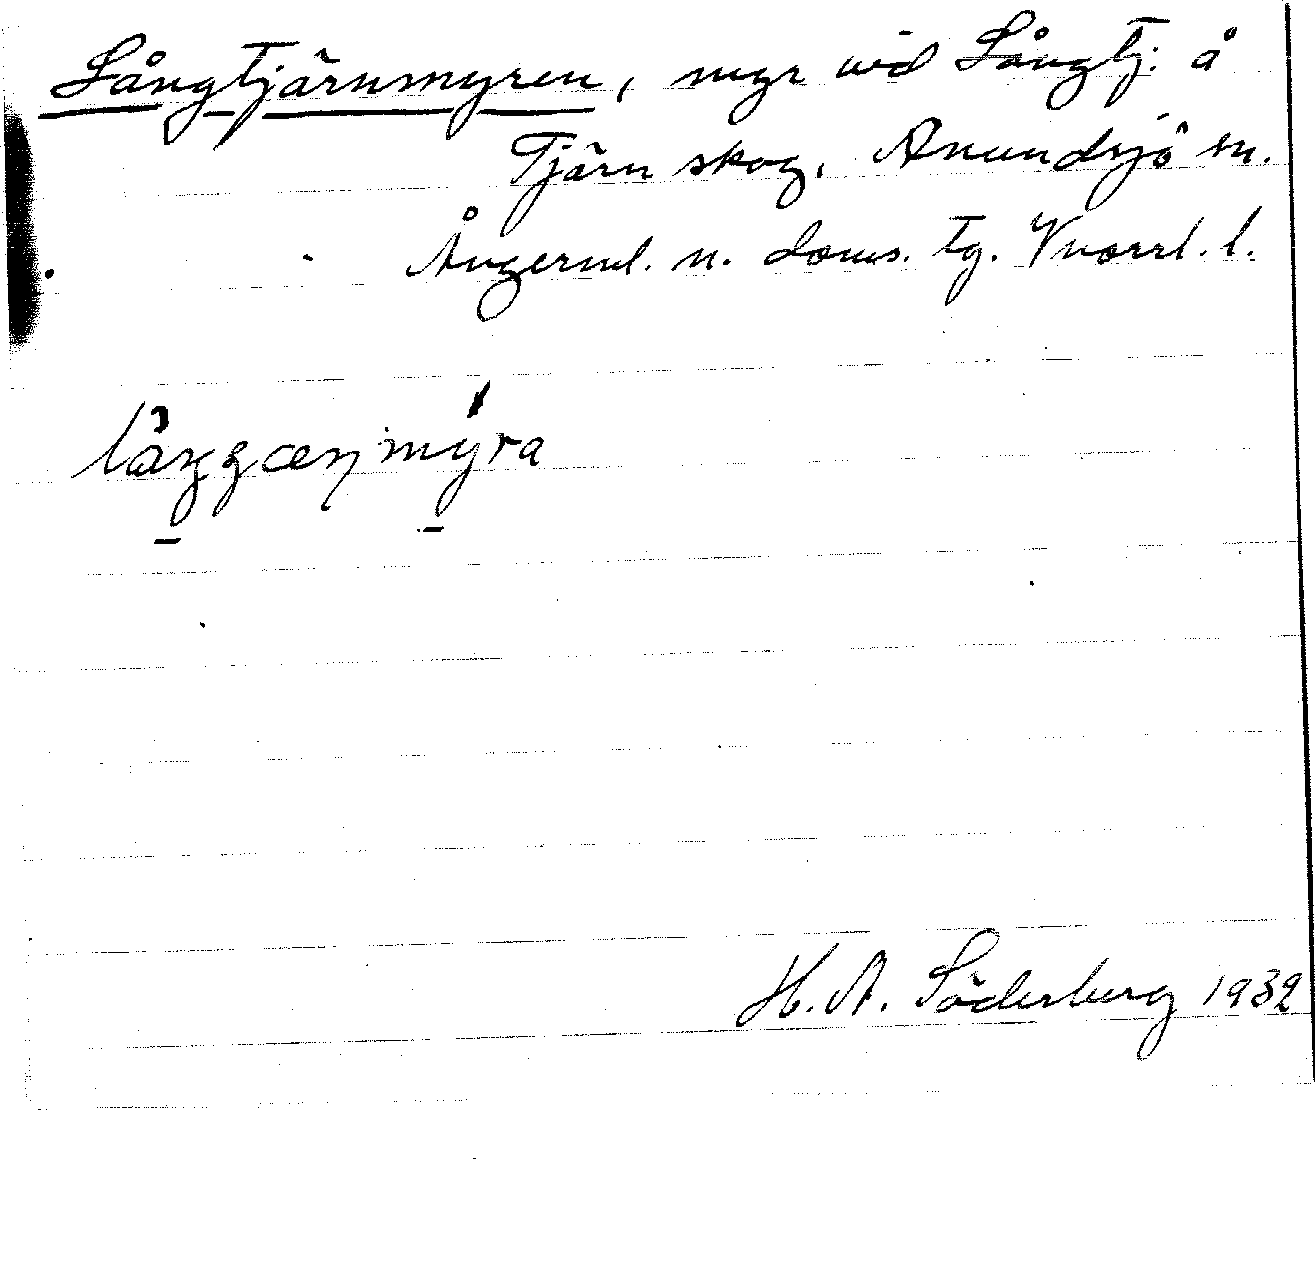 Långtjärnmyren, myr vid Långtj. å
Tjärn skog, Anundsjö sn.
Ångerml. n. doms. tg. Vnorrl. l.